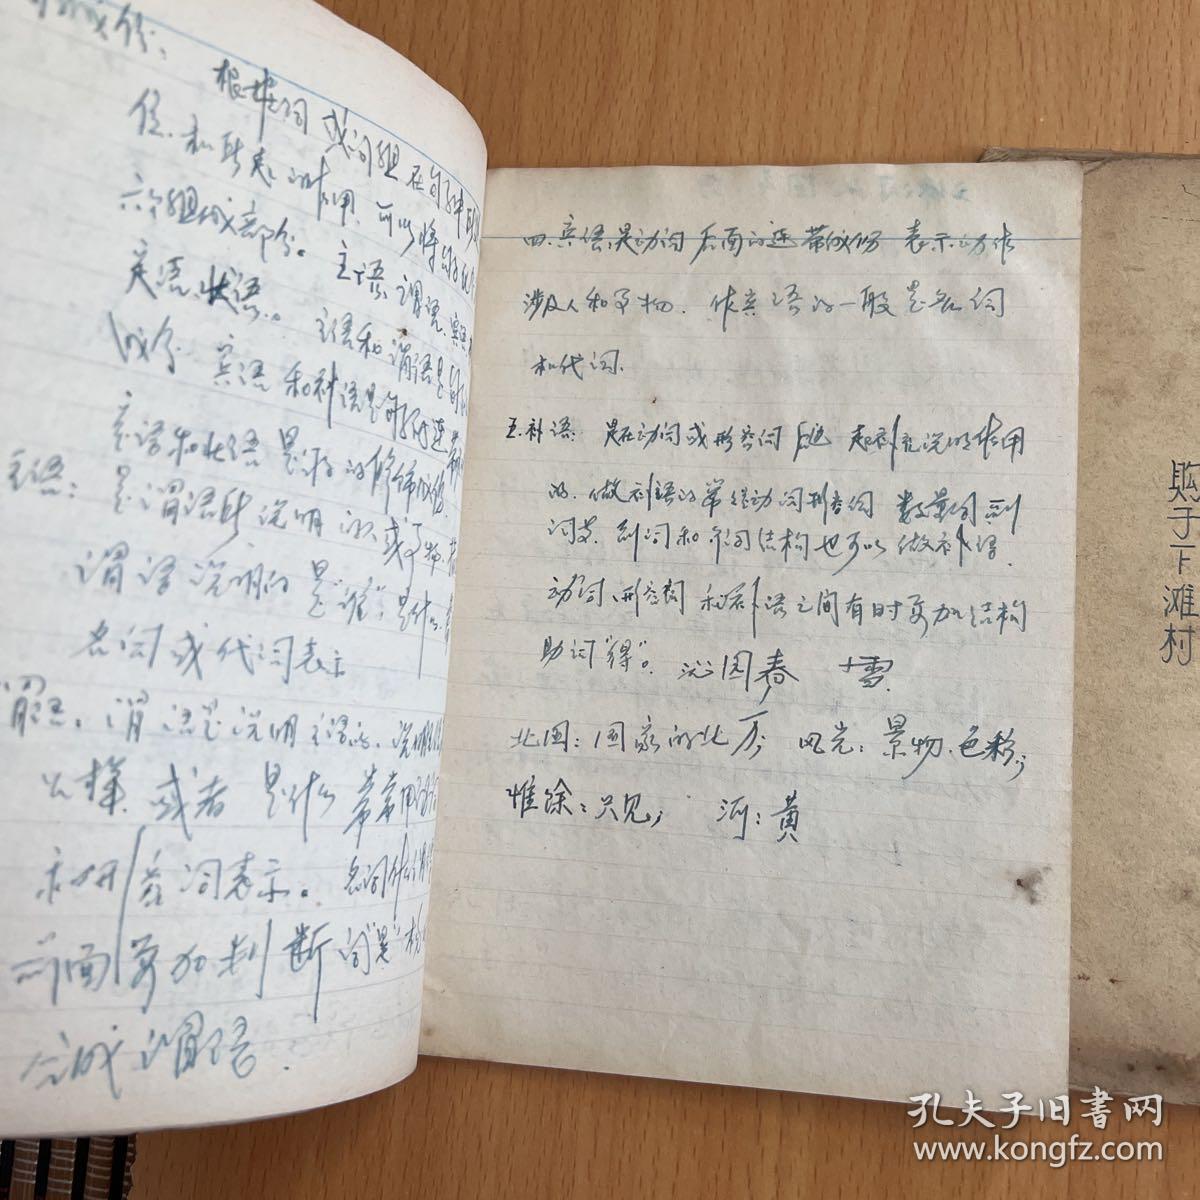 成份：
根据词或词组在句子中所
位和所起的作用，可以将句子
六个组成部分。主语、谓语、宾语
定语、状语。主语和谓语是
成分 宾语和补语是句子的连带
定语和状语是 的修饰成份
主语：是谓语所说明的人或事物
谓语说明的是"谁"、是什么
名词或代词表示
谓语：谓语是说明主语的，说明
么样 或者是什么 常常用动词
和形容词表示。名词作谓语
前面要加判断词"是"
合成谓语.
四.宾语是动词后面的连带成份 表示动作
涉及人和事物. 作宾语的一般是名词
和代词.
五.补语： 是在动词或形容词后边 起补充说明作用
的. 做补语的常繁动词形容词 数量词 副
词等. 副词和介词结构也可以做补语.
动词、形容词和补语之间有时要加结构
助词"得"。 沁园春 雪
北国：国家的北方； 风光：景物.色彩；
惟馀：只见； 河：黄
购于下滩村
孔夫子旧书网
www.kongfz.com